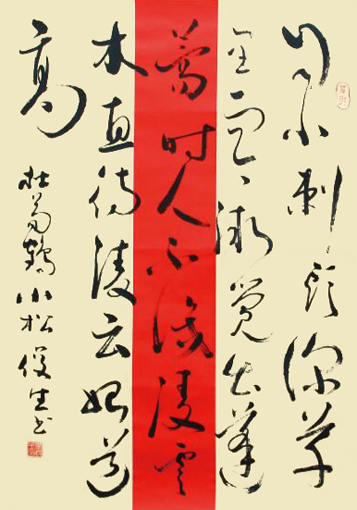 自小刺头深草
里而今渐觉出蓬
蒿时人不识凌雲
木直待凌云始道
高
杜荀鹤小松俊生书